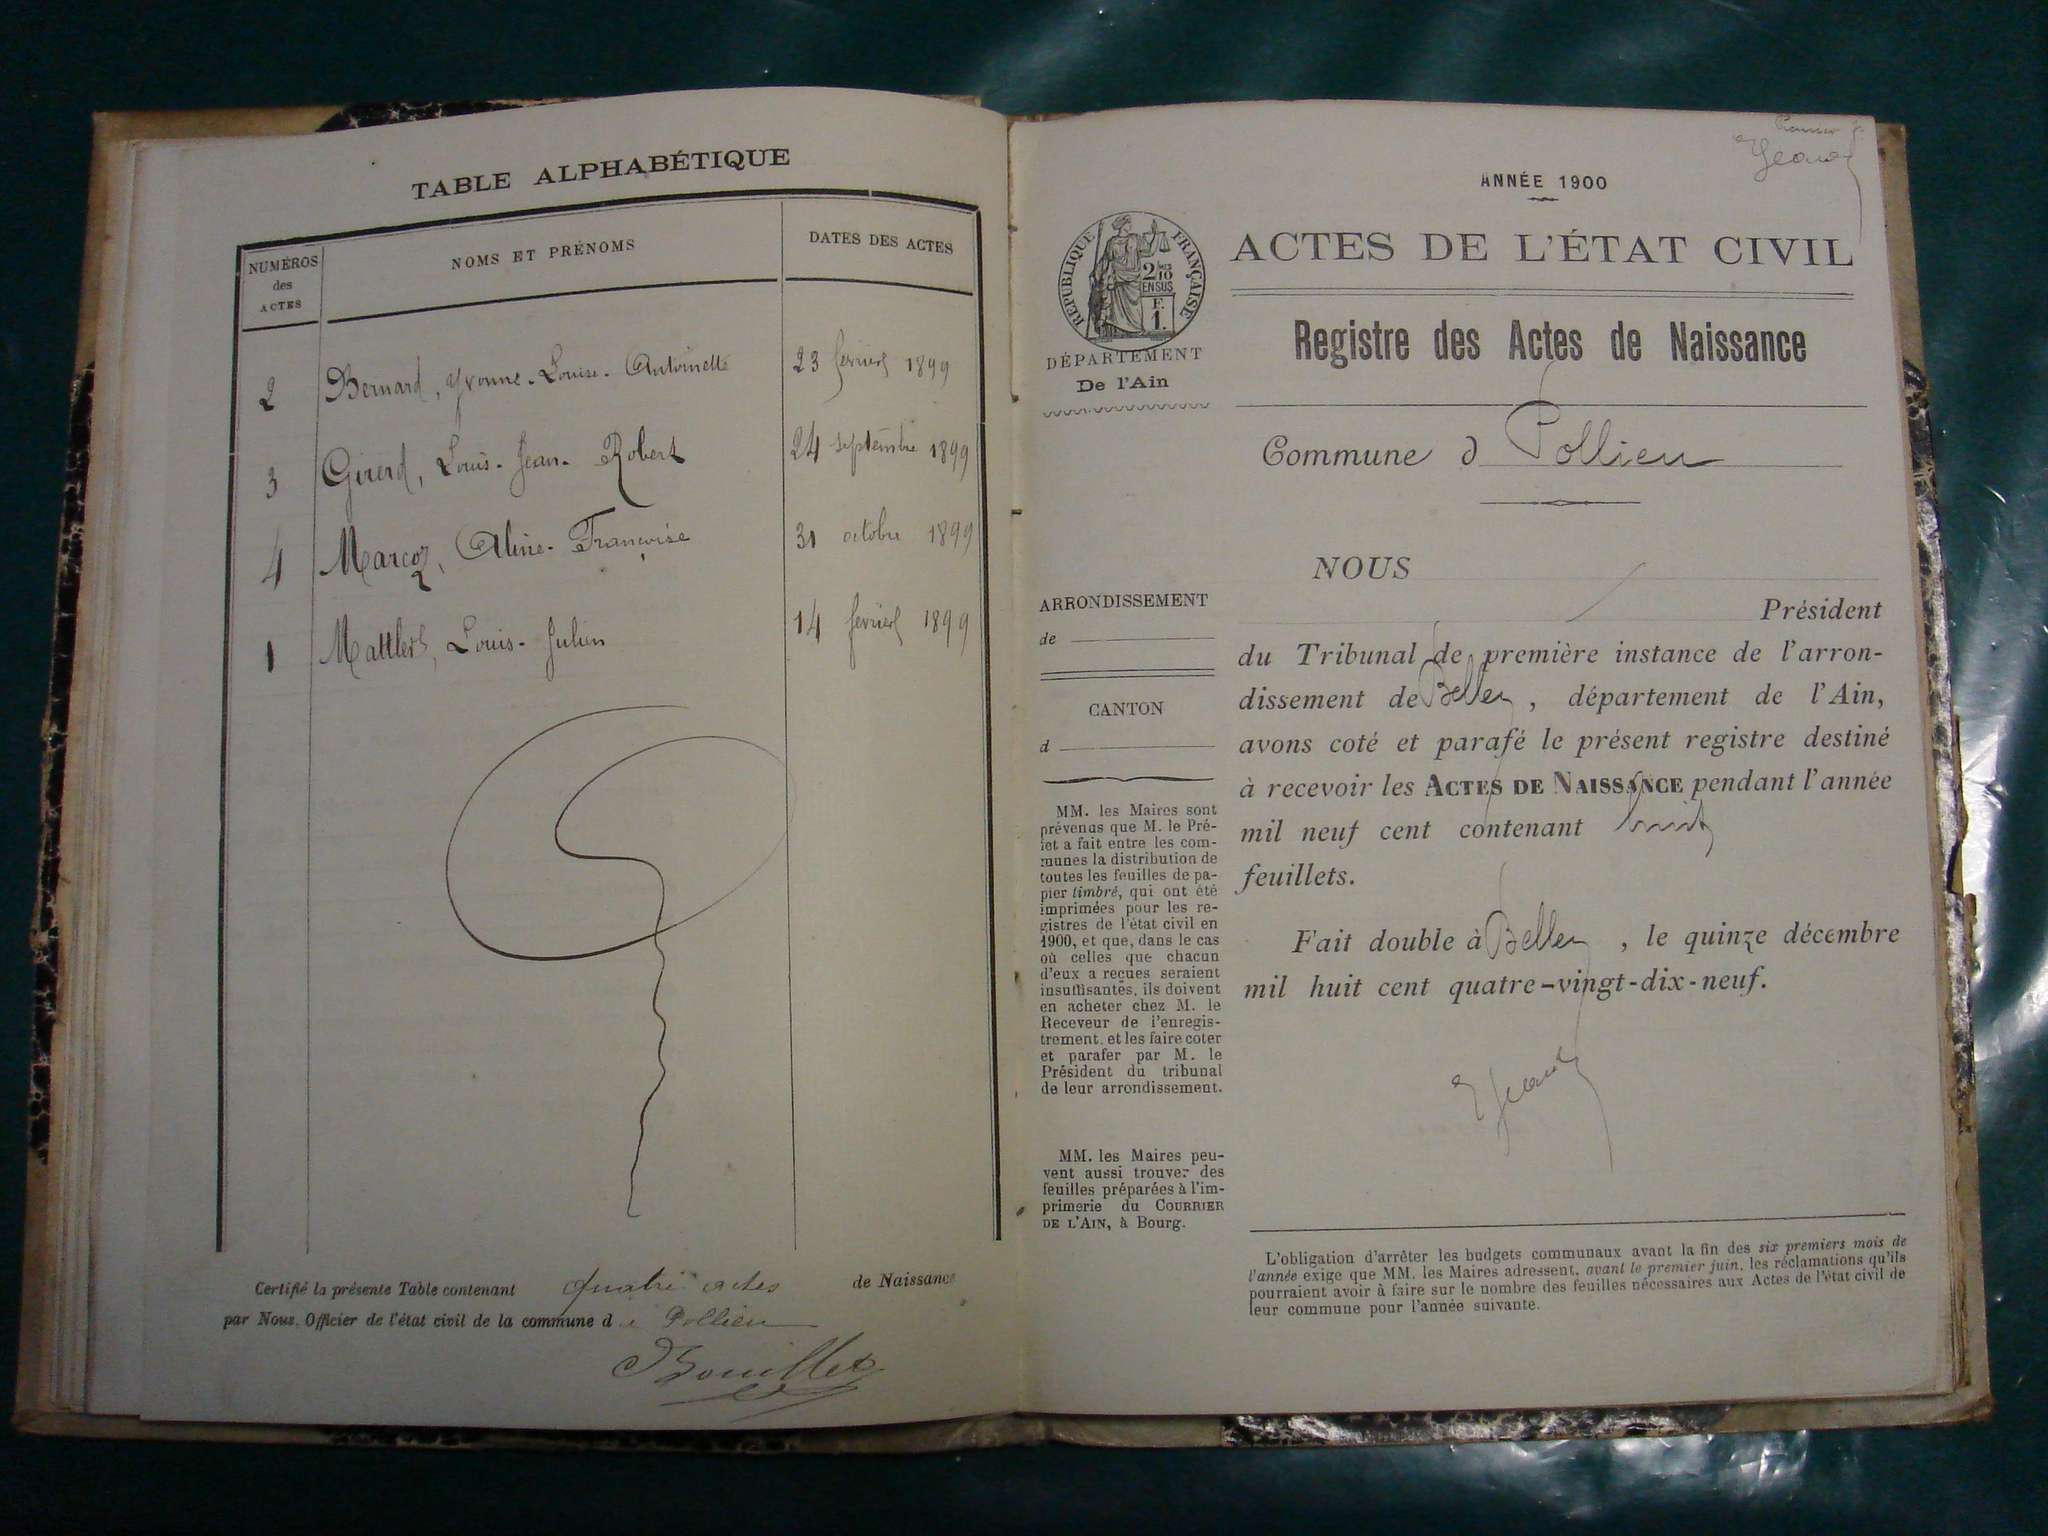 TABLE ALPHABÉTIQUE
NUMÉROS
des
ACTES
NOMS ET PRÉNOMS
DATES DES ACTES
2 Bernard, Yvonne-Louise-Antoinette 23 fevrier 1899
3 Girerd, Louis-Jean-Robert 24 septembre 1899
4 Marcoz, Aline-Françoise 31 octobre 1899
1 Louis-Julien 14 fevrier 1899
Certifié la présente Table contenant quatre actes de Naissance
par Nous, Officier de l'état civil de la commune de Pollieu
Bouillet
ANNÉE 1900
RÉPUBLIQUE FRANÇAISE
2/10
EN SUS
F.
1.
ACTES DE L'ÉTAT CIVIL
DÉPARTEMENT
De l'Ain
Registre des Actes de Naissance
Commune d Pollieu
ARRONDISSEMENT
de
CANTON
d
MM. les Maires sont
prévenus que M. le Pré-
fet a fait entre les com-
munes la distribution de
toutes les feuilles de pa-
pier timbré, qui ont été
imprimées pour les re-
gistres de l'état civil en
1900, et que, dans le cas
où celles que chacun
d'eux a reçues seraient
insuffisantes, ils doivent
en acheter chez M. le
Receveur de l'enregis-
trement, et les faire coter
et parafer par M. le
Président du tribunal
de leur arrondissement.
MM. les Maires peu-
vent aussi trouver des
feuilles préparées à l'im-
primerie du COURRIER
DE L'AIN, à Bourg.
NOUS
Président
du Tribunal de première instance de l'arron-
dissement de Belley, département de l'Ain,
avons coté et parafé le présent registre destiné
à recevoir les ACTES DE NAISSANCE pendant l'année
mil neuf cent contenant huit
feuillets.
Fait double à Belley, le quinze décembre
mil huit cent quatre-vingt-dix-neuf.
L'obligation d'arrêter les budgets communaux avant la fin des six premiers mois de
l'année exige que MM. les Maires adressent, avant le premier juin, les réclamations qu'ils
pourraient avoir à faire sur le nombre des feuilles nécessaires aux Actes de l'état civil de
leur commune pour l'année suivante.